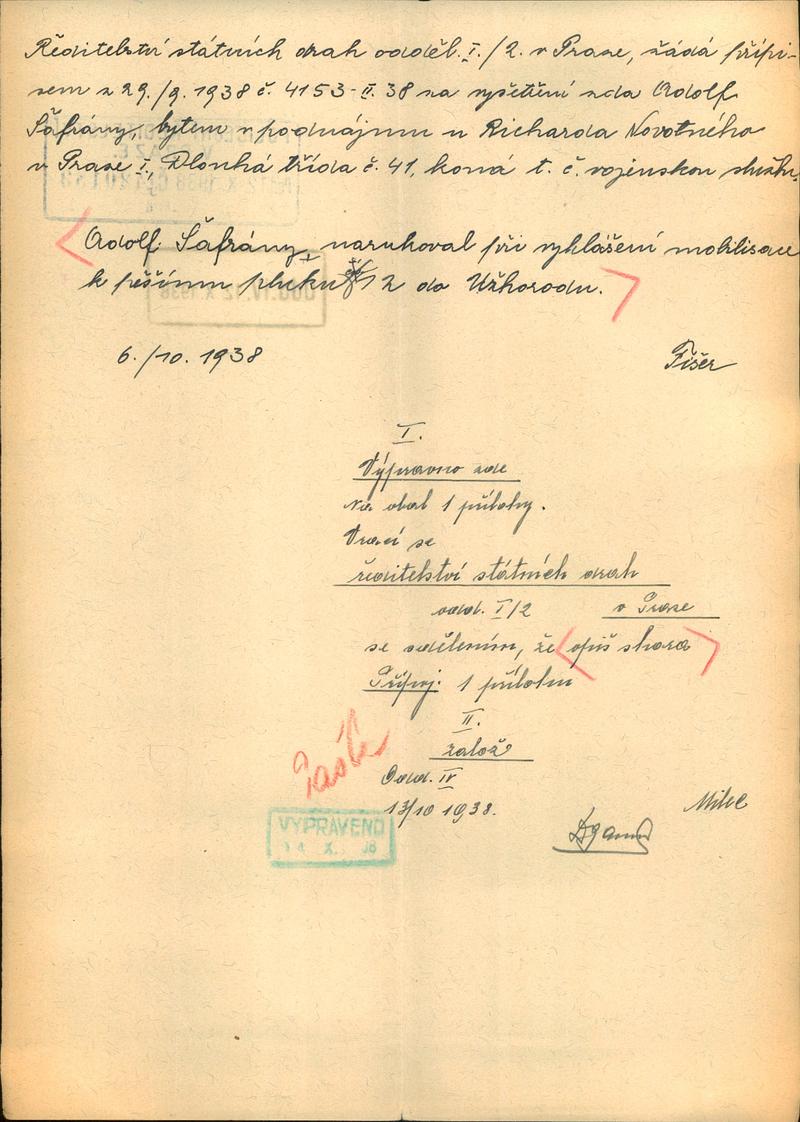 Ředitelství státních drah odděl. I./2. v Praze, žádá přípi-
sem z 29./9. 1938 č. 4153-II.38 za vyšetření zda Adolf
Šafrány, bytem v podnájmu u Richarda Novotného
v Praze I., Dlouhá třída č. 41, koná t. č. vojenskou službu.
Adolf Šafrány, narukoval při vyhlášení mobilisace
k pěšímu pluku 12 do Užhorodu.
6./10. 1938
Fišer
I.
Výpravno zde
Na obal 1 přílohy.
Vrací se
ředitelství státních drah
odd. I/2 v Praze
se sdělením, že opiš shora
Připoj: 1 přílohu
II.
založ
Odd. IV
13/10 1938.
VYPRAVENO
14 X. 38